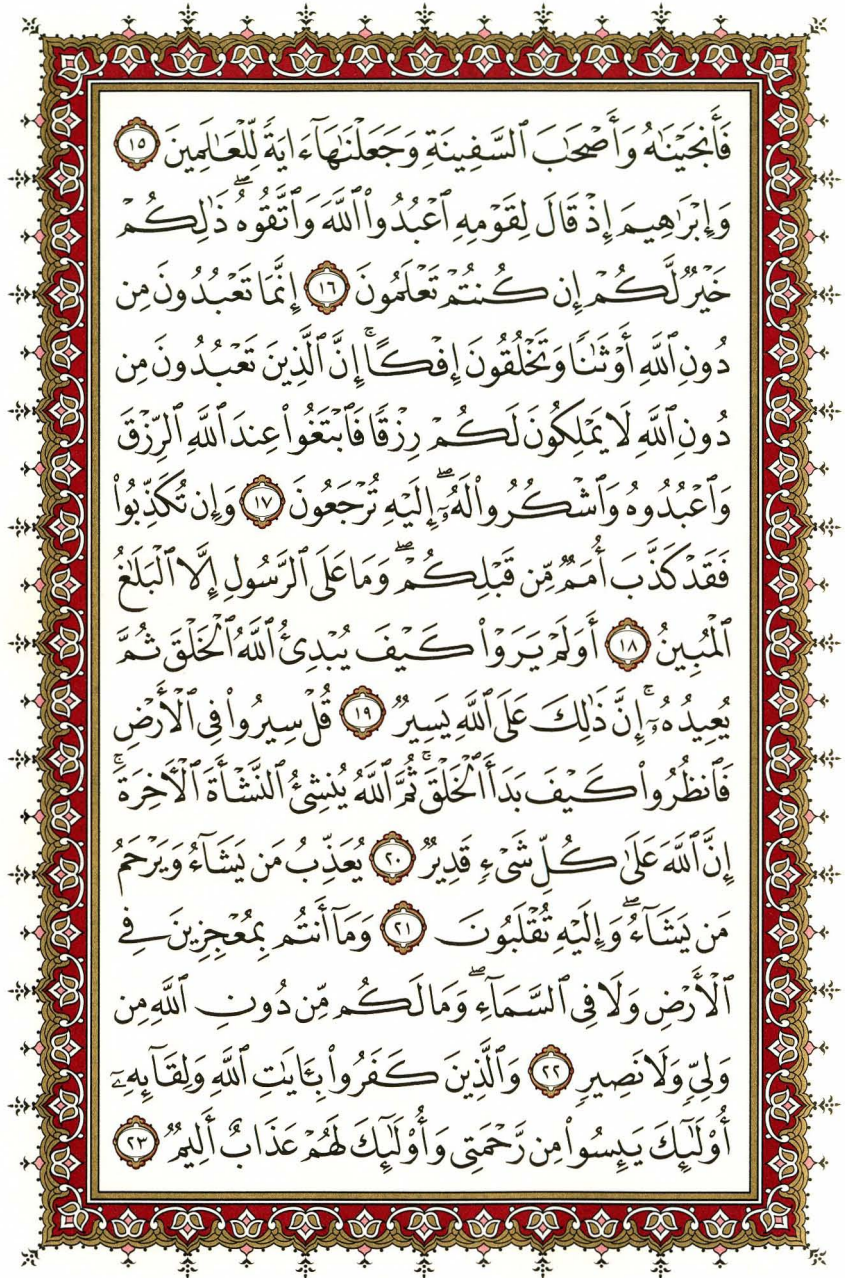 فَأَنجَيْنَٰهُ وَأَصْحَٰبَ ٱلسَّفِينَةِ وَجَعَلْنَٰهَآ ءَايَةً لِّلْعَٰلَمِينَ ١٥
وَإِبْرَٰهِيمَ إِذْ قَالَ لِقَوْمِهِ ٱعْبُدُوا۟ ٱللَّهَ وَٱتَّقُوهُ ۖ ذَٰلِكُمْ
خَيْرٌ لَّكُمْ إِن كُنتُمْ تَعْلَمُونَ ١٦ إِنَّمَا تَعْبُدُونَ مِن
دُونِ ٱللَّهِ أَوْثَٰنًا وَتَخْلُقُونَ إِفْكًا ۚ إِنَّ ٱلَّذِينَ تَعْبُدُونَ مِن
دُونِ ٱللَّهِ لَا يَمْلِكُونَ لَكُمْ رِزْقًا فَٱبْتَغُوا۟ عِندَ ٱللَّهِ ٱلرِّزْقَ
وَٱعْبُدُوهُ وَٱشْكُرُوا۟ لَهُۥٓ ۖ إِلَيْهِ تُرْجَعُونَ ١٧ وَإِن تُكَذِّبُوا۟
فَقَدْ كَذَّبَ أُمَمٌ مِّن قَبْلِكُمْ ۖ وَمَا عَلَى ٱلرَّسُولِ إِلَّا ٱلْبَلَٰغُ
ٱلْمُبِينُ ١٨ أَوَلَمْ يَرَوْا۟ كَيْفَ يُبْدِئُ ٱللَّهُ ٱلْخَلْقَ ثُمَّ
يُعِيدُهُۥٓ ۚ إِنَّ ذَٰلِكَ عَلَى ٱللَّهِ يَسِيرٌ ١٩ قُلْ سِيرُوا۟ فِى ٱلْأَرْضِ
فَٱنظُرُوا۟ كَيْفَ بَدَأَ ٱلْخَلْقَ ۚ ثُمَّ ٱللَّهُ يُنشِئُ ٱلنَّشْأَةَ ٱلْءَاخِرَةَ ۚ
إِنَّ ٱللَّهَ عَلَىٰ كُلِّ شَىْءٍ قَدِيرٌ ٢٠ يُعَذِّبُ مَن يَشَآءُ وَيَرْحَمُ
مَن يَشَآءُ ۖ وَإِلَيْهِ تُقْلَبُونَ ٢١ وَمَآ أَنتُم بِمُعْجِزِينَ فِى
ٱلْأَرْضِ وَلَا فِى ٱلسَّمَآءِ ۖ وَمَا لَكُم مِّن دُونِ ٱللَّهِ مِن
وَلِىٍّ وَلَا نَصِيرٍ ٢٢ وَٱلَّذِينَ كَفَرُوا۟ بِـَٔايَٰتِ ٱللَّهِ وَلِقَآئِهِۦٓ
أُو۟لَٰٓئِكَ يَئِسُوا۟ مِن رَّحْمَتِى وَأُو۟لَٰٓئِكَ لَهُمْ عَذَابٌ أَلِيمٌ ٢٣